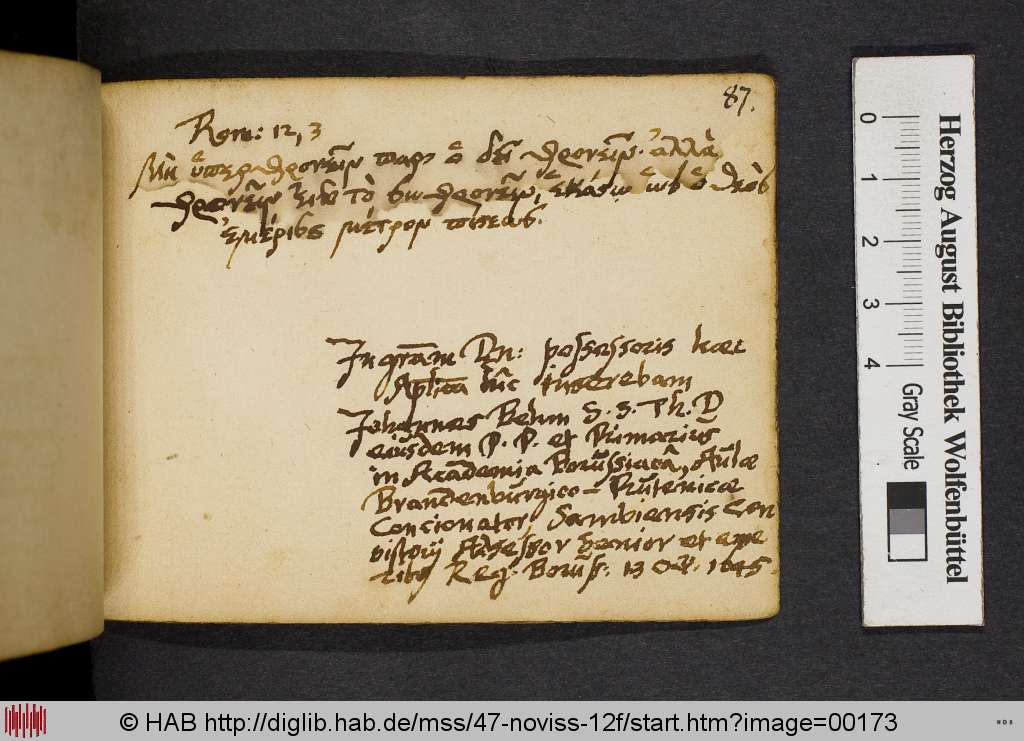 87.
Rom: 12, 3
Μὴ ὑπερφρονεῖν παρ' ὃ δεῖ φρονεῖν· ἀλλὰ
φρονεῖν εἰς τὸ σωφρονεῖν, ἑκάστῳ ὡς ὁ θεὸς
ἐμέρισε μέτρον πίστεως.
In gratiam Dn: possessoris haec
huc inserebam
Johannes Behm S. S. Th. D
ejusdem P. P. et Primarius
in Academia Borussiacâ, Aulae
Brandenburgico-Prutenicae
Concionator, Sambiensis Con
sistorij Assessor Senior et eme
ritus Reg. Boruss. 13 Oct. 1645
Herzog August Bibliothek Wolfenbüttel
0 1 2 3 4
Gray Scale
© HAB http://diglib.hab.de/mss/47-noviss-12f/start.htm?image=00173
WDB